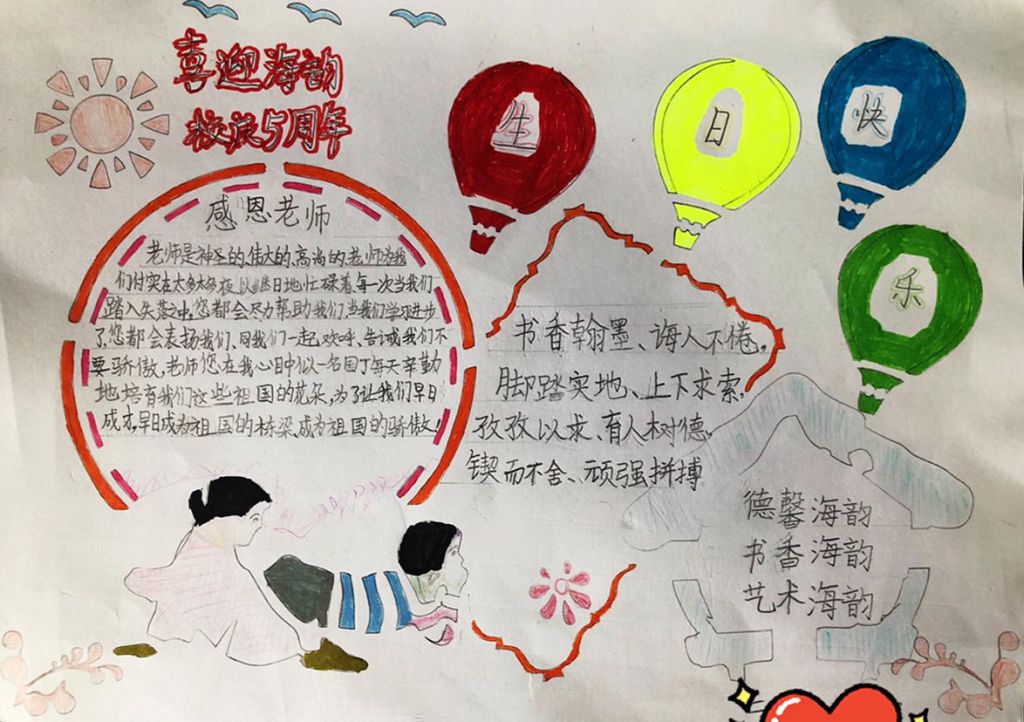 喜迎海韵
校诞5周年
生
日
快
乐
感恩老师
老师是神圣的、伟大的、高尚的。老师为我
们付实在太多太多夜以继日地忙碌着、每一次当我们
踏入失落之中,您都会尽力帮助我们,当我们学习进步
了,您都会表扬我们、同我们一起欢呼、告诫我们不
要骄傲,老师您在我心目中似一名园丁每天辛勤
地培育我们这些祖国的花朵,为了让我们早日
成才,早日成为祖国的桥梁、成为祖国的骄傲!
书香翰墨、诲人不倦,
脚踏实地、上下求索,
孜孜以求、有人树德,
锲而不舍、顽强拼搏
德馨海韵
书香海韵
艺术海韵